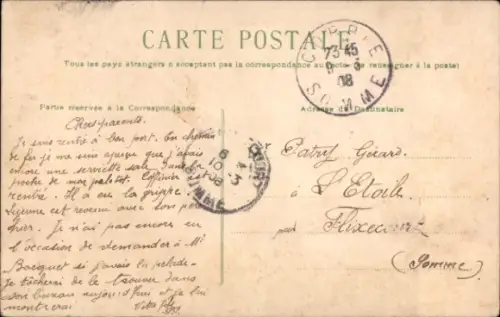 CARTE POSTALE
Tous les pays étrangers n'acceptant pas la correspondance au recto, se renseigner à la poste
Partie réservée à la Correspondance
Adresse du Destinataire
CORBIE
73-45
08
SOMME
Chers parents.
Je suis rentré à bon port. En chemin
de fer je me suis aperçu que j'avais
encore une serviette sale dans la
poche de mon paletot. est
rentré. Il a eu la grippe.
Lejeune est revenu avec son
hier. Je n'ai pas encore eu
l'occasion de demander à Mr
Bacquet si j'avais la pelade.
Je tâcherai de le trouver dans
son bureau aujourd'hui et je lui
montrerai
Gérard
à L'Etoile
par Flixecourt
(Somme)